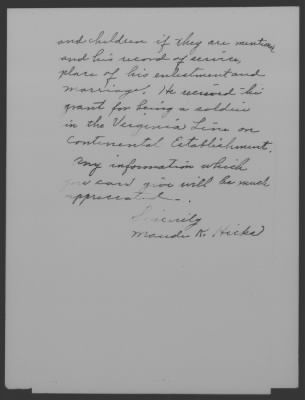 and children if they are mentioned
and his record of service,
place of his enlistment and
marriage. He received his
grant for being a soldier
in the Virginia Line on
Continental Establishment.
Any information which
you can give will be much
appreciated.
Sincerely
Maude K. Hicks